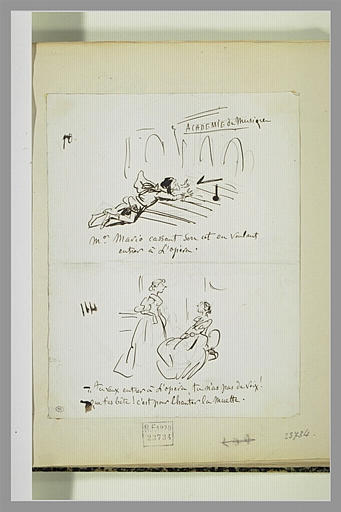 ACADEMIE de Musique
Mor Mario cassant son ut en voulant
entrer à L'opéra.
— Tu veux entrer à L'opéra, tu n'as pas de voix!
— que t'es bête! c'est pour chanter la Muette.
R.F. 1970
23734
23734.